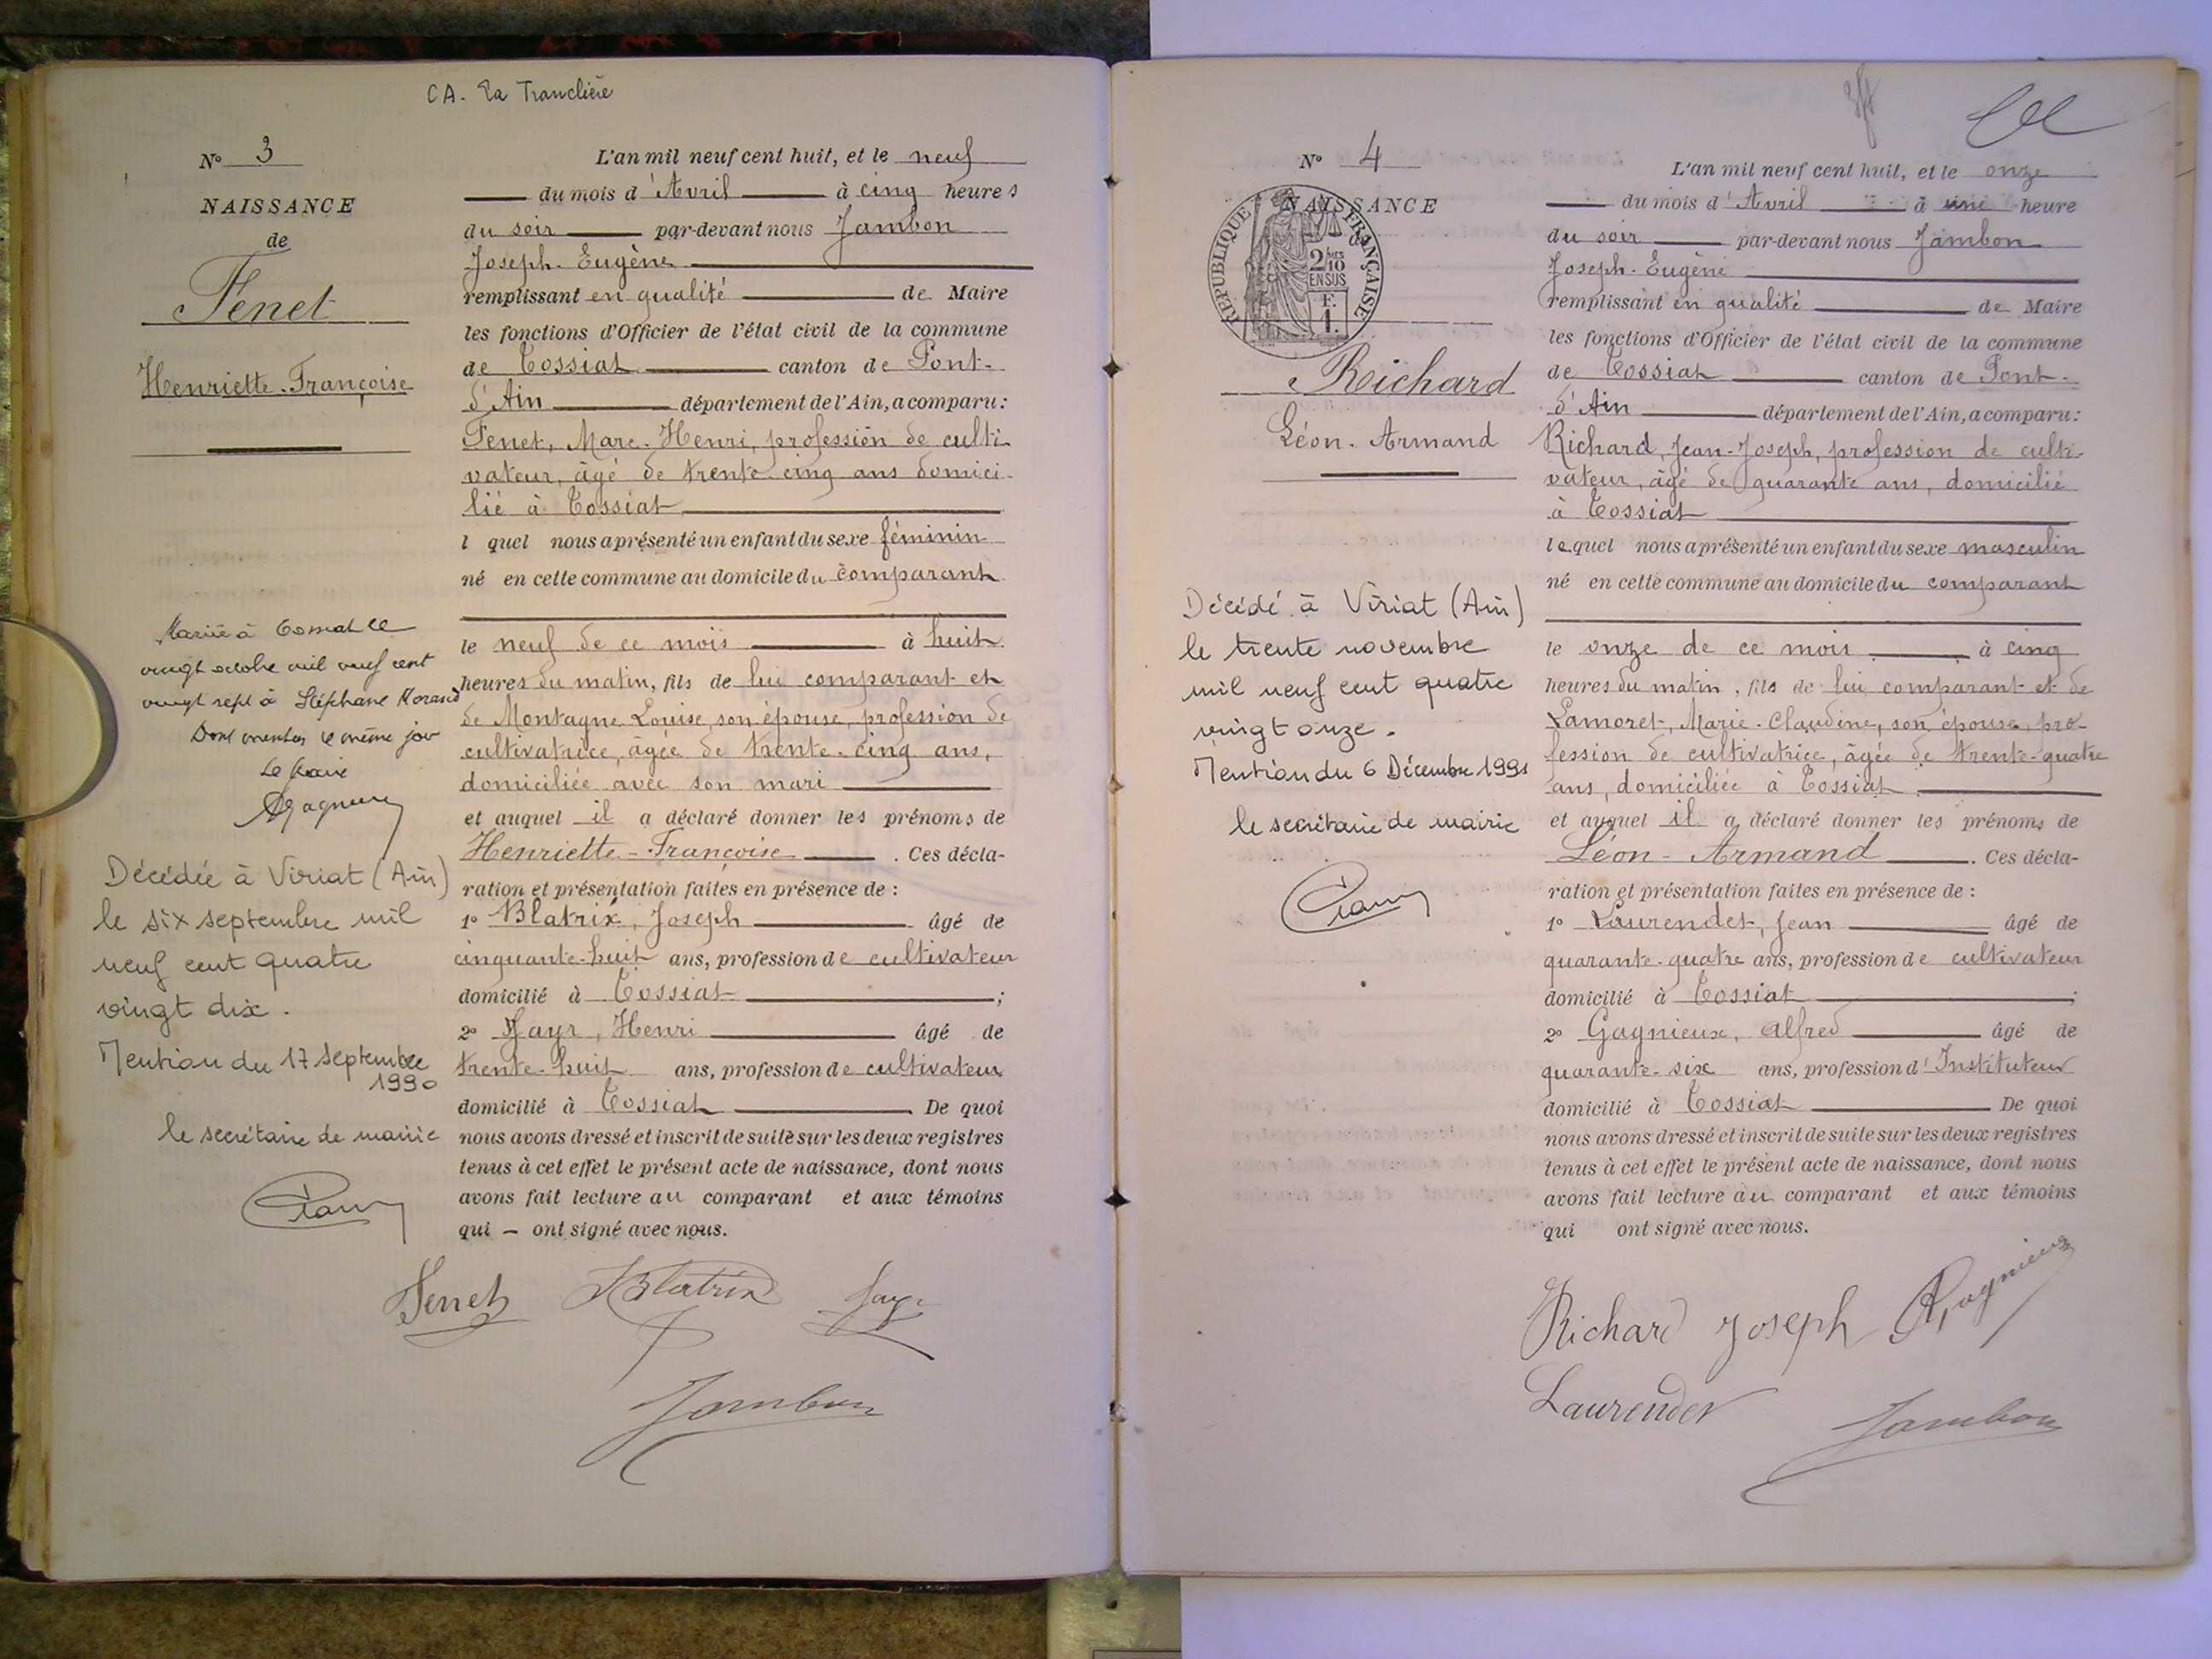 CA. La Tranclière
N° 3
NAISSANCE
de
Fenet
Henriette-Françoise
L'an mil neuf cent huit, et le neuf
du mois d'Avril à cinq heures
du soir par-devant nous Jambon
Joseph-Eugène
remplissant en qualité de Maire
les fonctions d'Officier de l'état civil de la commune
de Tossiat canton de Pont-
d'Ain département de l'Ain, a comparu:
Fenet, Marc-Henri, profession de culti-
vateur, âgé de trente-cinq ans domici-
lié à Tossiat
l quel nous a présenté un enfant du sexe féminin
né en cette commune au domicile du comparant
le neuf de ce mois à huit
heures du matin, fils de lui comparant et
de Montagne Louise, son épouse, profession de
cultivatrice, âgée de trente-cinq ans,
domiciliée avec son mari
et auquel il a déclaré donner les prénoms de
Henriette-Françoise. Ces décla-
ration et présentation faites en présence de :
1° Blatrix, Joseph âgé de
cinquante-huit ans, profession de cultivateur
domicilié à Tossiat ;
2° Jayr, Henri âgé de
trente-huit ans, profession de cultivateur
domicilié à Tossiat. De quoi
nous avons dressé et inscrit de suite sur les deux registres
tenus à cet effet le présent acte de naissance, dont nous
avons fait lecture au comparant et aux témoins
qui – ont signé avec nous.
Mariée à Tossiat le
vingt octobre mil neuf cent
vingt sept à Stéphane Morand
Dont mention le même jour
Le Maire
Décédée à Viriat (Ain)
le six septembre mil
neuf cent quatre
vingt dix.
Mention du 17 septembre
1990
le secrétaire de mairie
Fenet Blatrix Jayr
Jambon
N° 4
NAISSANCE
REPUBLIQUE FRANÇAISE
2/10 EN SUS
F. 1.
Richard
Léon-Armand
L'an mil neuf cent huit, et le onze
du mois d'Avril à une heure
du soir par-devant nous Jambon
Joseph-Eugène
remplissant en qualité de Maire
les fonctions d'Officier de l'état civil de la commune
de Tossiat canton de Pont-
d'Ain département de l'Ain, a comparu:
Richard, Jean-Joseph, profession de culti-
vateur, âgé de quarante ans, domicilié
à Tossiat
lequel nous a présenté un enfant du sexe masculin
né en cette commune au domicile du comparant
le onze de ce mois à cinq
heures du matin, fils de lui comparant et de
Lamoret, Marie-Claudine, son épouse, pro-
fession de cultivatrice, âgée de trente-quatre
ans, domiciliée à Tossiat
et auquel il a déclaré donner les prénoms de
Léon-Armand. Ces décla-
ration et présentation faites en présence de :
1° Laurendet, Jean âgé de
quarante-quatre ans, profession de cultivateur
domicilié à Tossiat ;
2° Gagnieux, Alfred âgé de
quarante-six ans, profession d'Instituteur
domicilié à Tossiat De quoi
nous avons dressé et inscrit de suite sur les deux registres
tenus à cet effet le présent acte de naissance, dont nous
avons fait lecture au comparant et aux témoins
qui ont signé avec nous.
Décédé à Viriat (Ain)
le trente novembre
mil neuf cent quatre
vingt onze.
Mention du 6 Décembre 1991
le secrétaire de mairie
Richard Joseph AGagnieux
Laurendet Jambon